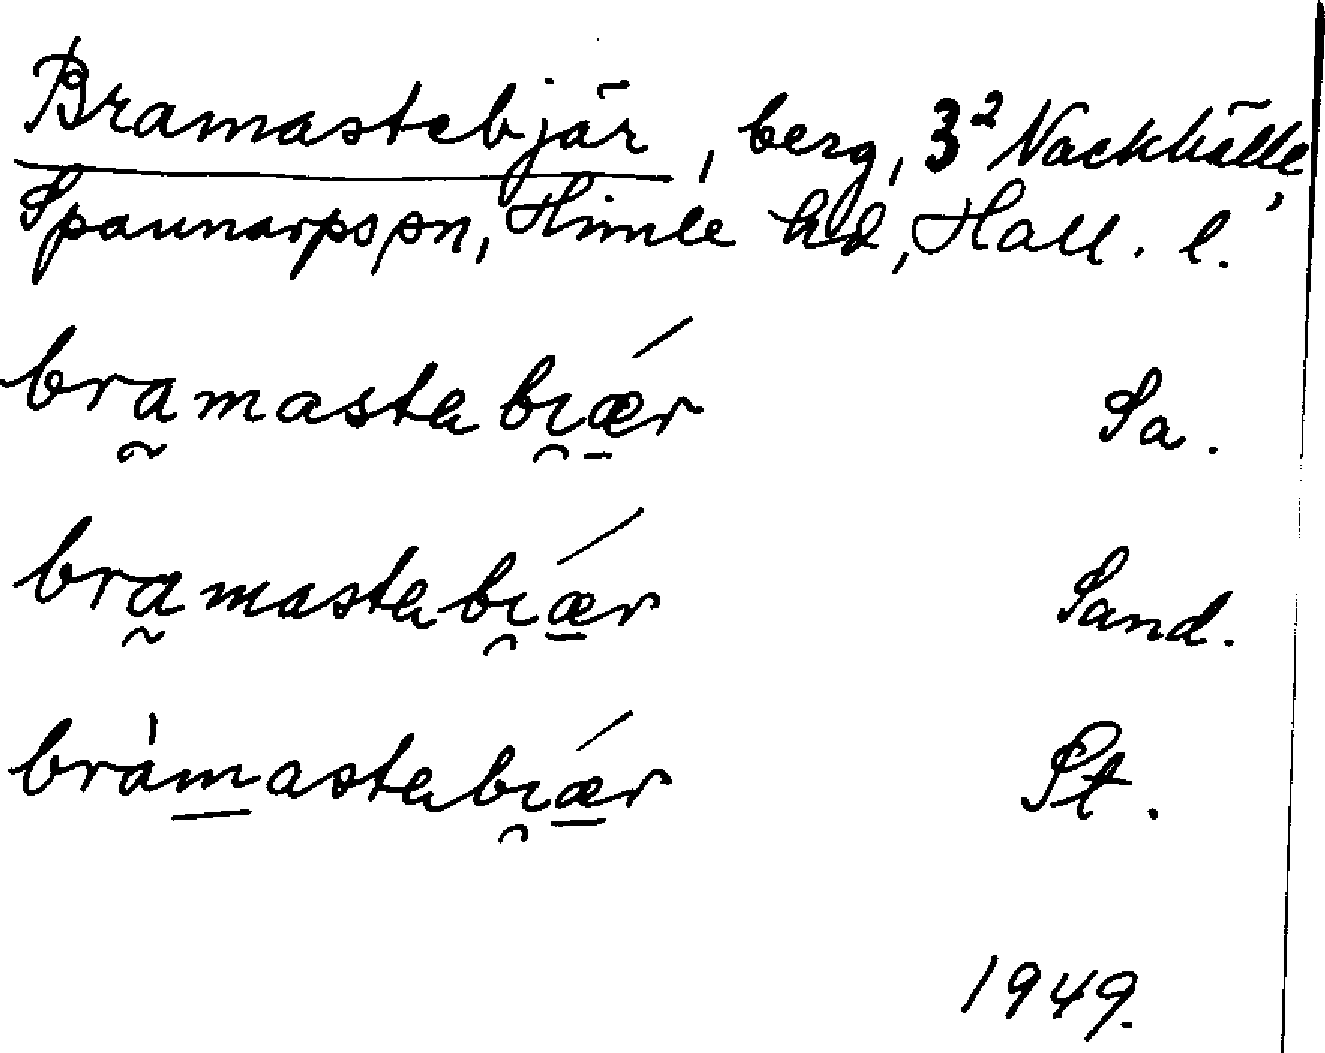 Bramastebjär, berg, 3² Nackhälle,
Spannarps sn, Himle hd, Hall. l.
bra̰mastabı̯ǽ̱r Sa.
bra̰mastabı̯ǽ̱r Sand.
bràm̱astabı̯ǽ̱r St.
1949.